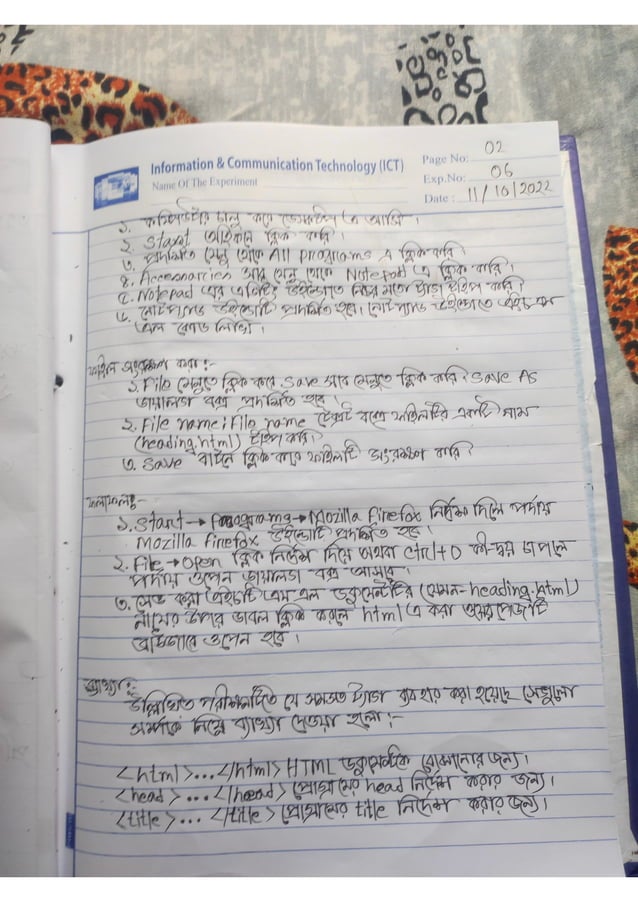 Information & Communication Technology (ICT)
Name Of The Experiment
Page No: 02
Exp.No: 06
Date: 11/10/2022
১. কম্পিউটার চালু করে ডেস্কটপ এ আসি।
২. Start আইকনে ক্লিক করি।
৩. প্রদর্শিত মেনু থেকে All programs এ ক্লিক করি।
৪. Accessories সাব মেনু থেকে Notepad এ ক্লিক করি।
৫. Notepad এর এডিটিং উইন্ডোতে নিম্নের মতো টাইপ করি।
৬. নোটপ্যাড উইন্ডোটি প্রদর্শিত হবে। নোটপ্যাড উইন্ডোতে এইচ এম
এল কোড লিখি।
ফাইল সংরক্ষণ করা:-
১. File মেনুতে ক্লিক করে save সাব মেনুতে ক্লিক করি। Save As
ডায়ালগ বক্স প্রদর্শিত হবে।
২. File name: File name টেক্সট বক্সে ফাইলটির একটি নাম
(heading.html) টাইপ করি।
৩. save বাটনে ক্লিক করে ফাইলটি সংরক্ষণ করি।
ফলাফল:-
১. Start → Programs → Mozilla Firefox নির্দেশ দিলে পর্দায়
Mozilla Firefox উইন্ডোটি প্রদর্শিত হবে।
২. File → Open ক্লিক নির্দেশ দিয়ে অথবা ctrl+O কী-দ্বয় চাপলে
পর্দায় ওপেন ডায়ালগ বক্স আসবে।
৩. সেভ করা এইচটি এম এল ডকুমেন্টটির (যেমন- heading.html)
নামের উপর ডাবল ক্লিক করলে html এ করা ওয়েব পেজটি
ব্রাউজারে ওপেন হবে।
ব্যাখ্যা:-
উল্লিখিত পরীক্ষণটিতে যে সমস্ত ট্যাগ ব্যবহার করা হয়েছে সেগুলো
সম্পর্কে নিম্নে ব্যাখ্যা দেওয়া হলো:-
<html>...</html> HTML ডকুমেন্টকে বোঝানোর জন্য।
<head>...</head> প্রোগ্রামের head নির্দেশ করার জন্য।
<title>...</title> প্রোগ্রামের title নির্দেশ করার জন্য।